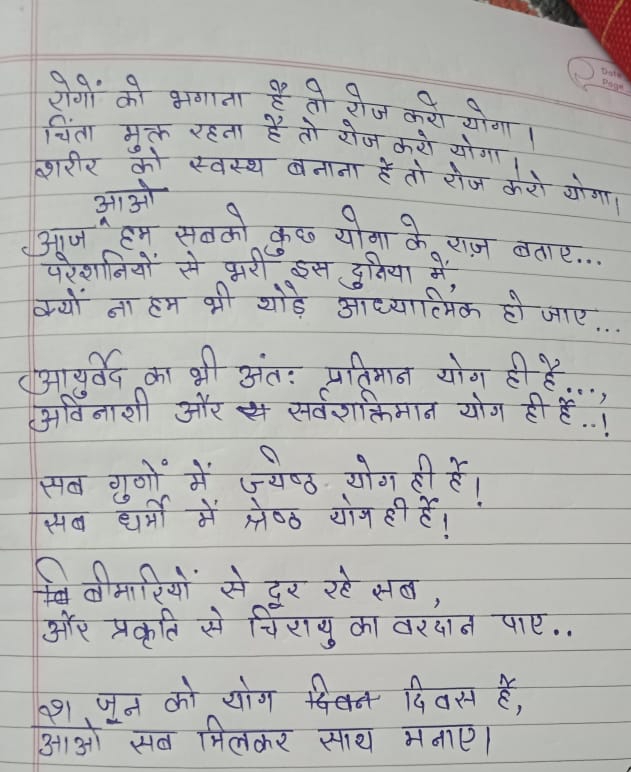 Date
Page
रोगों को भगाना है तो रोज करो योगा।
चिंता मुक्त रहना है तो रोज करो योगा।
शरीर को स्वस्थ बनाना है तो रोज करो योगा।
आओ
आज हम सबको कुछ योगा के राज़ बताए...
परेशानियों से भरी इस दुनिया में,
क्यों ना हम भी थोड़े आध्यात्मिक हो जाए...
आयुर्वेद का भी अंतः प्रतिमान योग ही है...,
अविनाशी और सर्वशक्तिमान योग ही है..!
सब गुणों में ज्येष्ठ योग ही है!
सब धर्मो में श्रेष्ठ योग ही है!
बीमारियों से दूर रहे सब,
और प्रकृति से चिरायु का वरदान पाए..
२१ जून को योग दिवस है,
आओ सब मिलकर साथ मनाए।